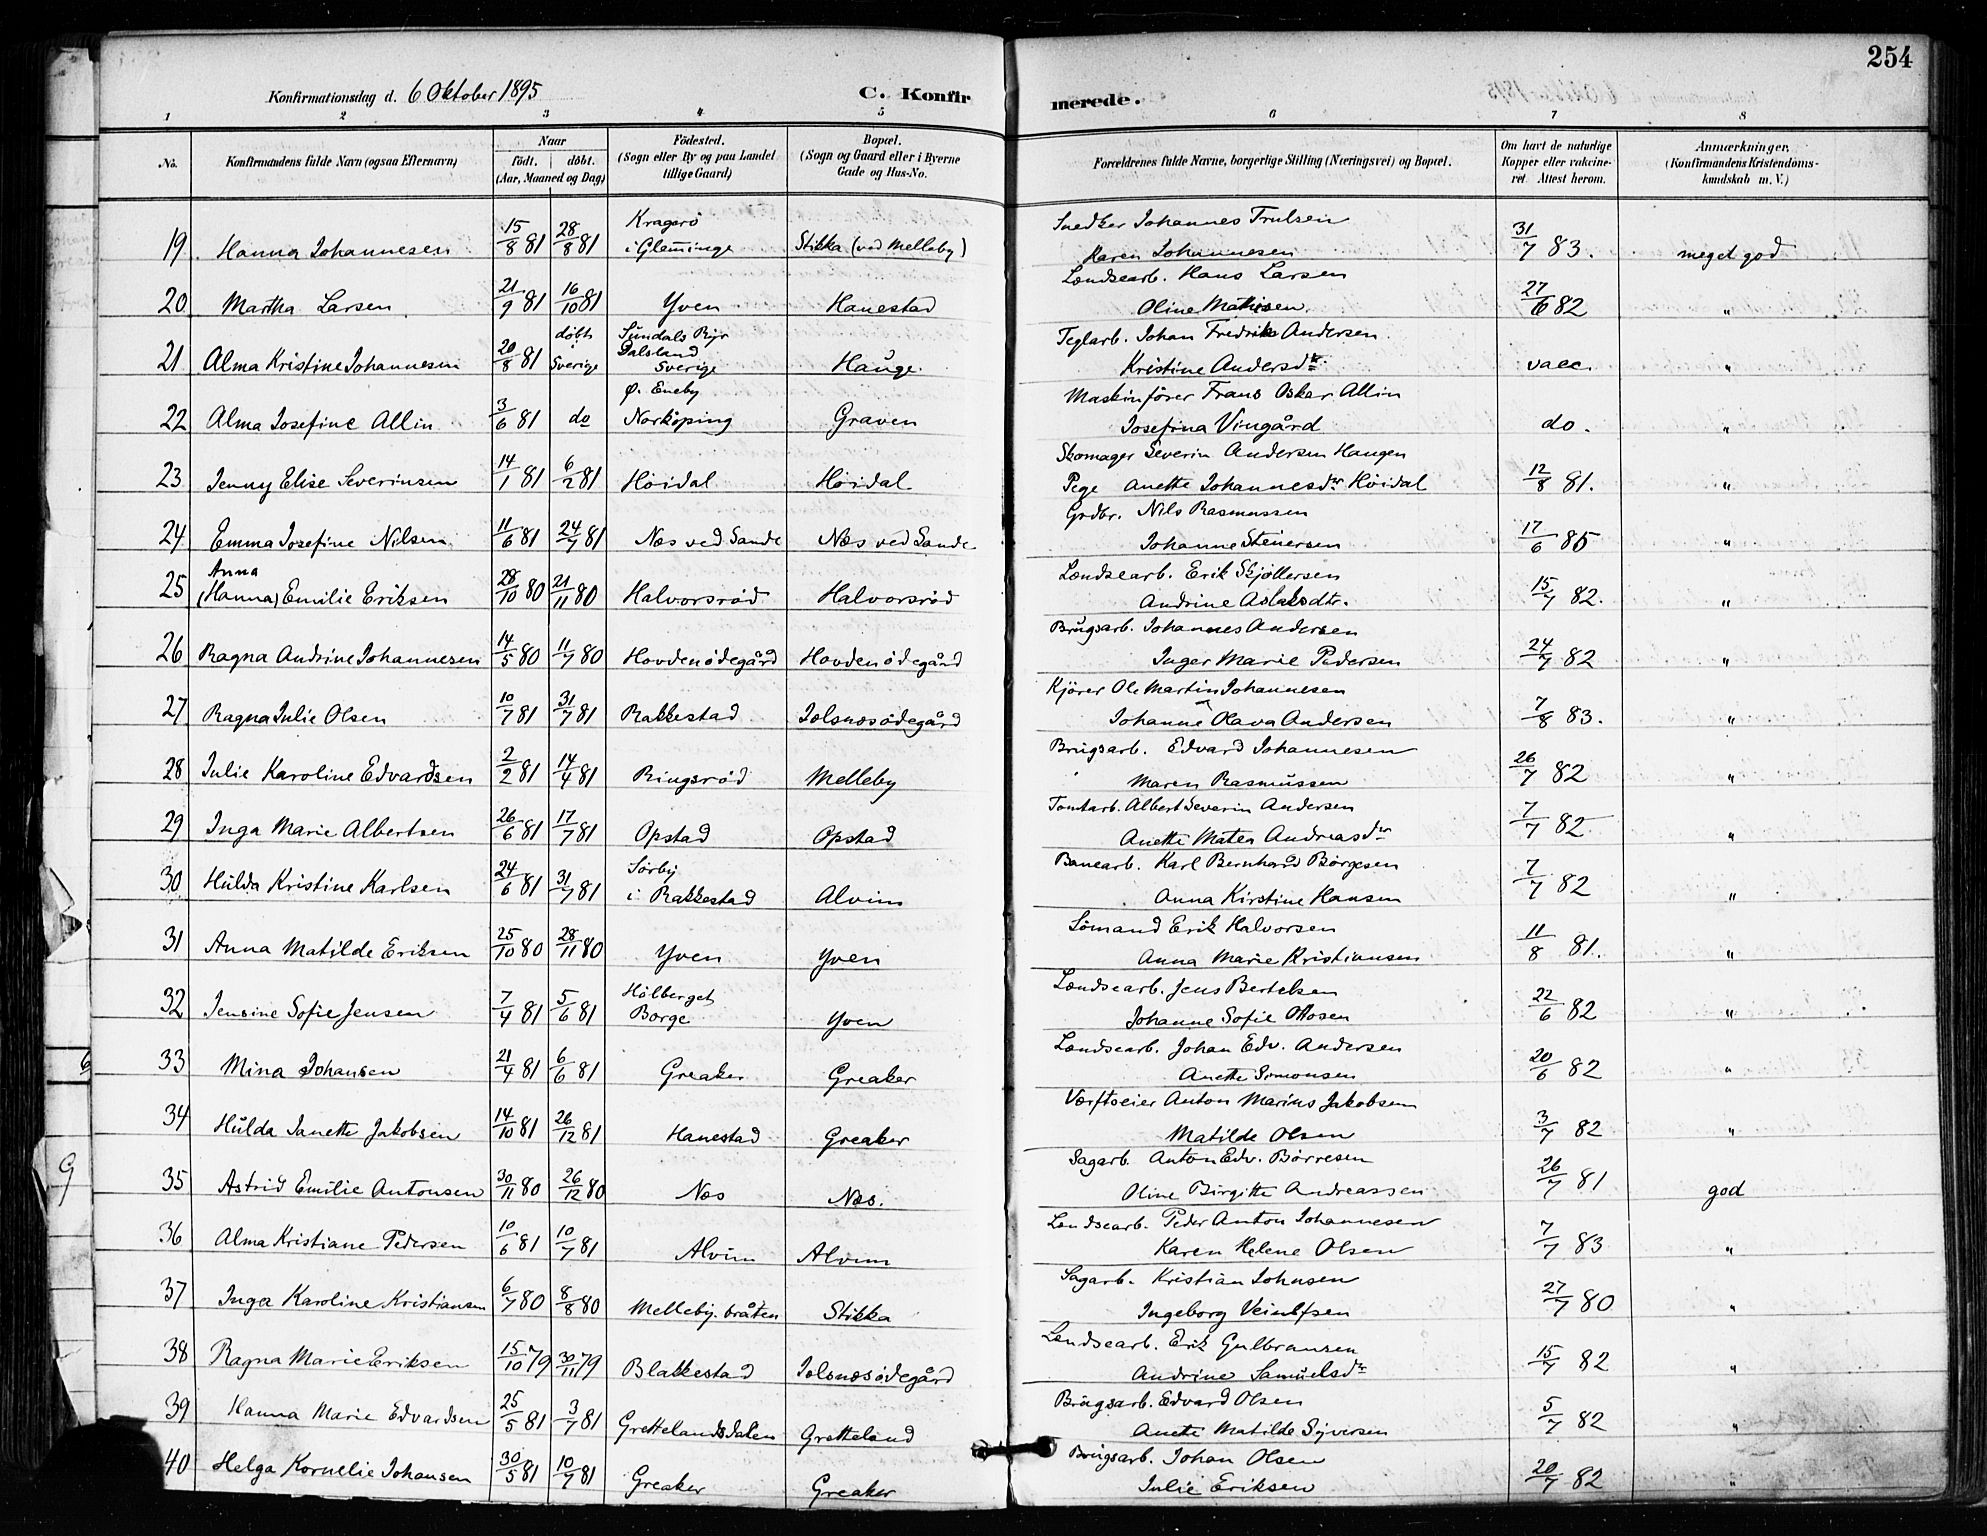 254
Konfirmationsdag d. 6 Oktober 1895 C. Konfirmerede.
1 2 3 4 5 6 7 8
No. Konfirmandens fulde Navn (ogsaa Efternavn) Naar født. døbt. (Aar, Maaned og Dag) Fødested. (Sogn eller By og paa Landet tillige Gaard) Bopæl. (Sogn og Gaard eller i Byerne Gade og Hus-No. Forældrenes fulde Navne, borgerlige Stilling (Næringsvei) og Bopæl. Om havt de naturlige Kopper eller vakcineret. Attest herom. Anmærkninger. (Konfirmandens Kristendomskundskab m. V.)
19. Hanna Johannesen 15/8 81 28/8 81 Kragerö i Glemminge Stikka (ved Melleby) Snedker Johannes Trulsen
Karen Johannesen 31/7 83. meget god
20 Martha Larsen 21/9 81 16/10 81 Yven Hanestad Lændsearb. Hans Larsen
Oline Mathisen 27/6 82 "
21 Alma Kristine Johannesen 20/8 81 döbt i Sverige Sundals Ryr Dalsland Sverige Hauge Teglarb. Johan Fredrik Andersen
Kristine Andersdtr vacc. "
22 Alma Josefine Allin 3/6 81 do Ö. Eneby Norköping Graven Maskinförer Frans Oskar Allin
Josefina Vingård do. "
23 Jenny Elise Severinsen 14/1 81 6/2 81 Höidal Höidal Skomager Severin Andersen Haugen
Pige Anette Johannesdtr Höidal 12/8 81. "
24 Emma Josefine Nilsen 11/6 81 24/7 81 Næs ved Sande Næs ved Sande Grdbr. Nils Rasmussen
Johanne Stenersen 17/6 85 "
25 Anna (Hanna) Emilie Eriksen 28/10 80 21/11 80 Halvorsröd Halvorsröd Lændsearb. Erik Skjöllersen
Andrine Aslaksdtr. 15/7 82. "
26 Ragna Andrine Johannesen 14/5 80 11/7 80 Hovdenödegård Hovdenödegård Brugsarb. Johannes Andersen
Inger Marie Pedersen 24/7 82 "
27 Ragna Julie Olsen 10/7 81 31/7 81 Rakkestad Jolsnæsödegård Kjörer Ole Martin Johannesen
Johanne Olava Andersen 7/8 83. "
28 Julie Karoline Edvardsen 2/2 81 14/4 81 Ringsröd Melleby Brugsarb. Edvard Johannesen
Maren Rasmussen 26/7 82 "
29 Inga Marie Albertsen 26/6 81 17/7 81 Opstad Opstad Tomtarb. Albert Severin Andersen
Anette Matea Andreasdtr 7/7 82 "
30 Hulda Kristine Karlsen 24/6 81 31/7 81 Sörby i Rakkestad Alvim Banearb. Karl Bernhard Börgesen
Anna Kirstine Hansen 7/7 82 "
31 Anna Matilde Eriksen 25/10 80 28/11 80 Yven Yven Sömand Erik Halvorsen
Anna Marie Kristiansen 11/8 81. "
32 Jensine Sofie Jensen 7/4 81 5/6 81 Hölberget Borge Yven Lændsearb. Jens Bertelsen
Johanne Sofie Ottosen 22/6 82 "
33 Mina Johansen 21/4 81 6/6 81 Greaker Greaker Lændsearb. Johan Edv. Andersen
Anette Simonsen 20/6 82 "
34 Hulda Janette Jakobsen 14/10 81 26/12 81 Hanestad Greaker Værftseier Anton Marius Jakobsen
Matilde Olsen 3/7 82 "
35 Astrid Emilie Antonsen 30/11 80 26/12 80 Næs Næs. Sagarb. Anton Edv. Börresen
Oline Birgitte Andreassen 26/7 81 god
36 Alma Kristiane Pedersen 10/6 81 10/7 81 Alvim Alvim Lændsearb. Peder Anton Johannesen
Karen Helene Olsen 7/7 83 "
37 Inga Karoline Kristiansen 6/7 80 8/8 80 Melleby-bråten Stikka Sagarb. Kristian Johnsen
Ingeborg Veiulfsen 27/7 80 "
38 Ragna Marie Eriksen 15/10 79 30/11 79 Blakkestad Jolsnæsödegård Lændsearb. Erik Gulbransen
Andrine Samuelsdtr 15/7 82 "
39 Hanna Marie Edvardsen 25/5 81 3/7 81 Grettelandsdalen Gretteland Brugsarb. Edvard Olsen
Anette Matilde Syversen 5/7 82 "
40 Helga Kornelie Johansen 30/5 81 10/7 81 Greaker Greaker Brugsarb. Johan Olsen
Julie Eriksen 20/7 82 "